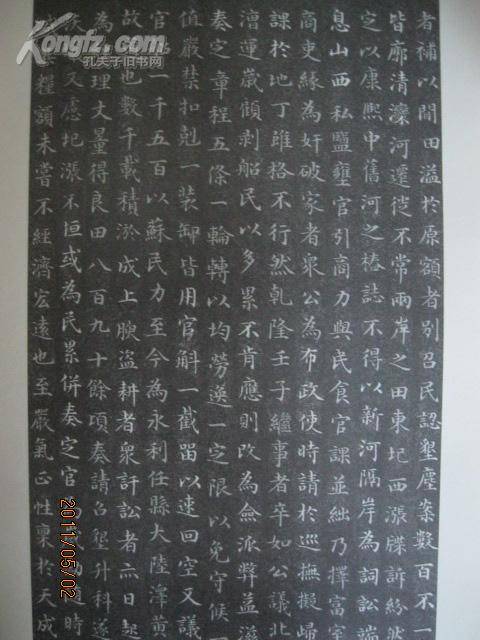 者補以閒田溢於原額者別召民認墾塵案數百不一
皆廓清灤河遷徙不常兩岸之田東圮西漲牒訴紛
定以康熙中舊河之樁誌不得以新河隔岸為詞訟端
息山西私鹽壅官引商力與民食官課並絀乃擇富
商吏緣為奸破家者衆公為布政使時請於巡撫擬
課於地丁雖格不行然乾隆壬子繼事者卒如公議北
漕運歲顧剥船民以多累不肯應則改為僉派弊益滋
奏定章程五條一輪轉以均勞逸一定限以免守候
值嚴禁扣剋一裝卸皆用官斛一截留以速回空又議
官 一千五百以蘇民力至今為永利任縣大陸澤黄
故 也數千載積淤成上腴盜耕者衆訐訟者亦日起
為理丈量得良田八百九十餘頃奏請召墾升科遂
又慮圮漲不恒或為民累併奏定官 隨時
糧額未嘗不經濟宏遠也至嚴氣正性稟於天成
Kongfz.com
孔夫子旧书网
2011/05/02